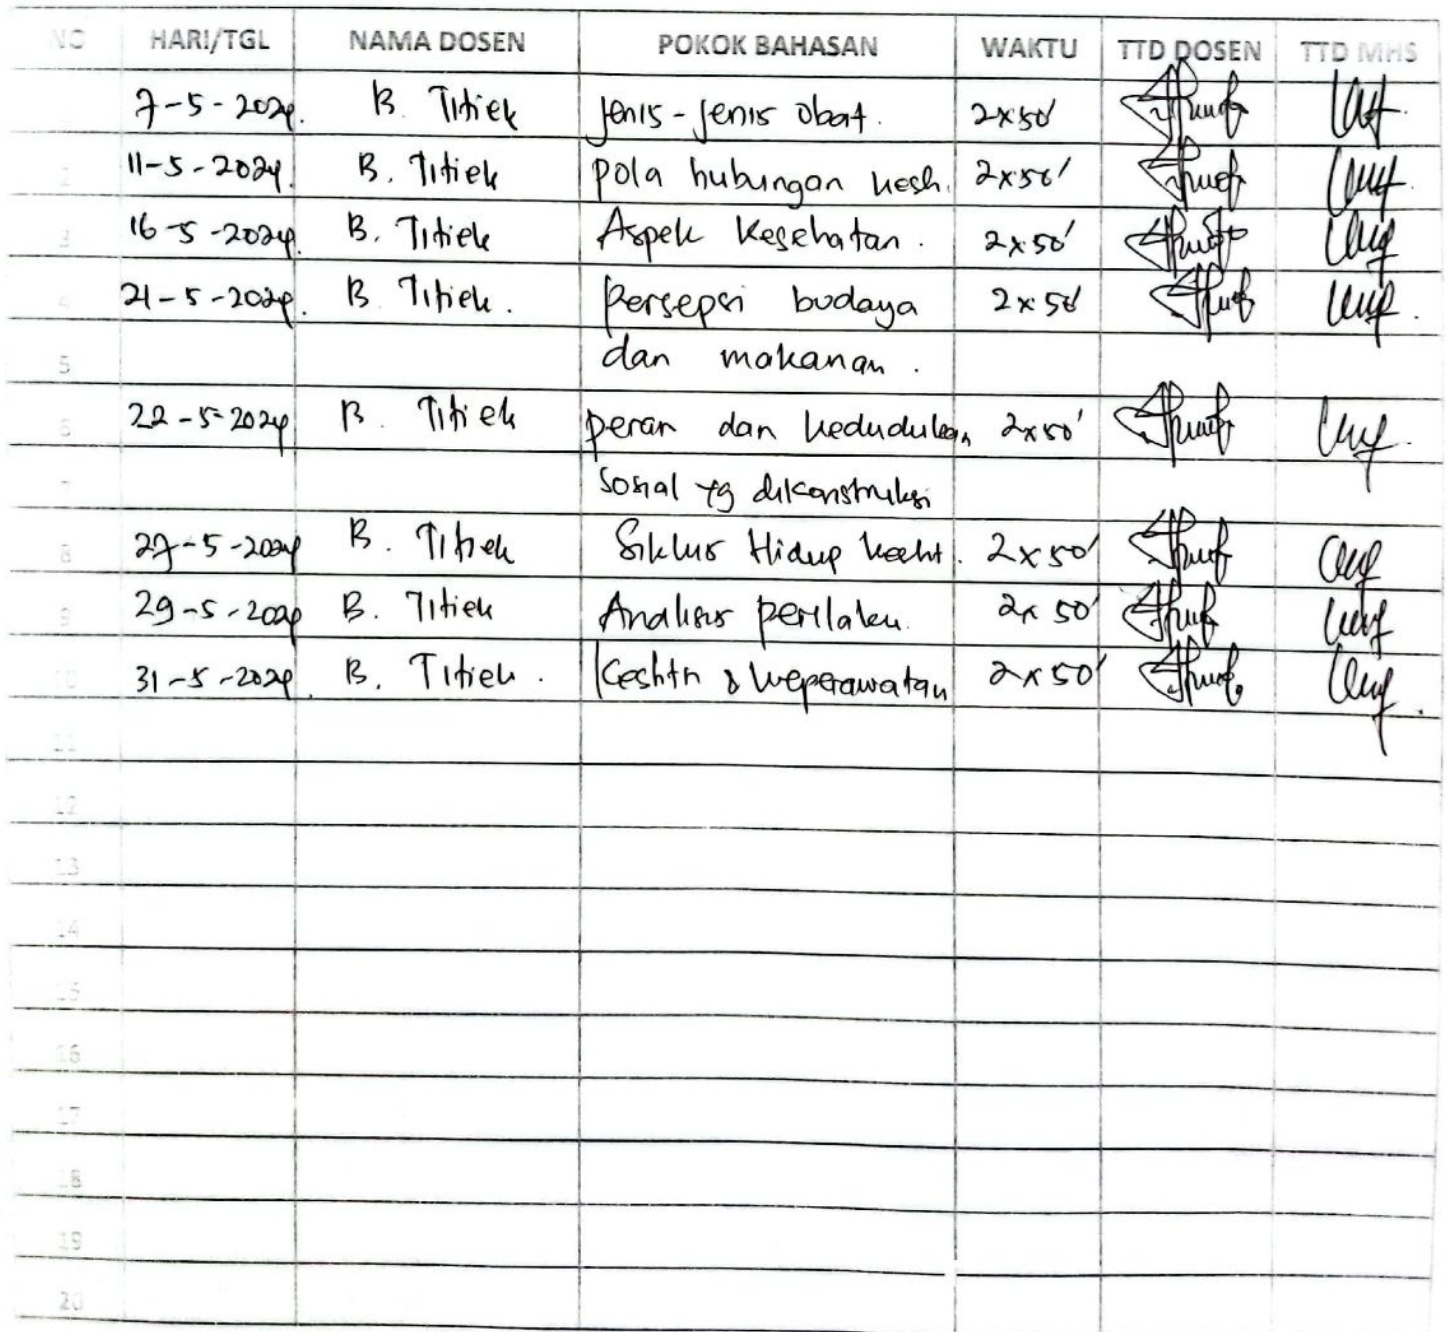 NO HARI/TGL NAMA DOSEN POKOK BAHASAN WAKTU TTD DOSEN TTD MHS
7-5-2024. B. Titiek Jenis-jenis obat. 2x50'
2 11-5-2024. B. Titiek pola hubungan kesh. 2x50'
3 16-5-2024. B. Titiek Aspek Kesehatan. 2x50'
4 21-5-2024. B. Titiek. Persepsi budaya 2x50'
5 dan makanan.
6 22-5-2024 B. Titiek peran dan kedudukan 2x50'
7 Sosial yg dikonstruksi
8 27-5-2024 B. Titiek Siklus Hidup 2x50'
9 29-5-2024 B. Titiek Analisis perilaku. 2x50'
10 31-5-2024. B. Titiek. & keperawatan 2x50'
11
12
13
14
15
16
17
18
19
20